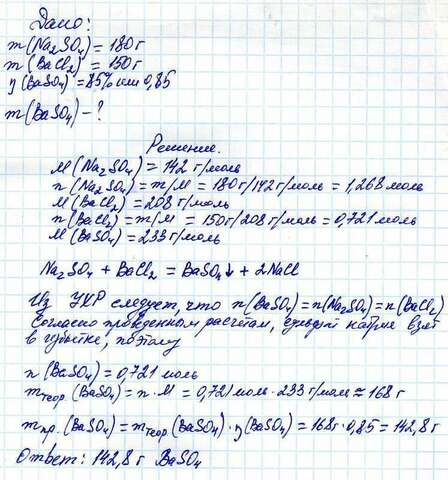 Дано:
m(Na₂SO₄) = 180 г
m(BaCl₂) = 150 г
η(BaSO₄) = 85% или 0,85
m(BaSO₄) - ?
Решение.
M(Na₂SO₄) = 142 г/моль
n(Na₂SO₄) = m/M = 180 г/142 г/моль = 1,268 моль
M(BaCl₂) = 208 г/моль
n(BaCl₂) = m/M = 150 г/208 г/моль = 0,721 моль
M(BaSO₄) = 233 г/моль
Na₂SO₄ + BaCl₂ = BaSO₄↓ + 2NaCl
Из УХР следует, что n(BaSO₄) = n(Na₂SO₄) = n(BaCl)
Согласно проведенным расчетам, сульфат натрия взят
в избытке, поэтому
n(BaSO₄) = 0,721 моль
mтеор.(BaSO₄) = n·M = 0,721 моль · 233 г/моль ≈ 168 г
mпр.(BaSO₄) = mтеор.(BaSO₄) · η(BaSO₄) = 168 г · 0,85 = 142,8 г
Ответ: 142,8 г BaSO₄